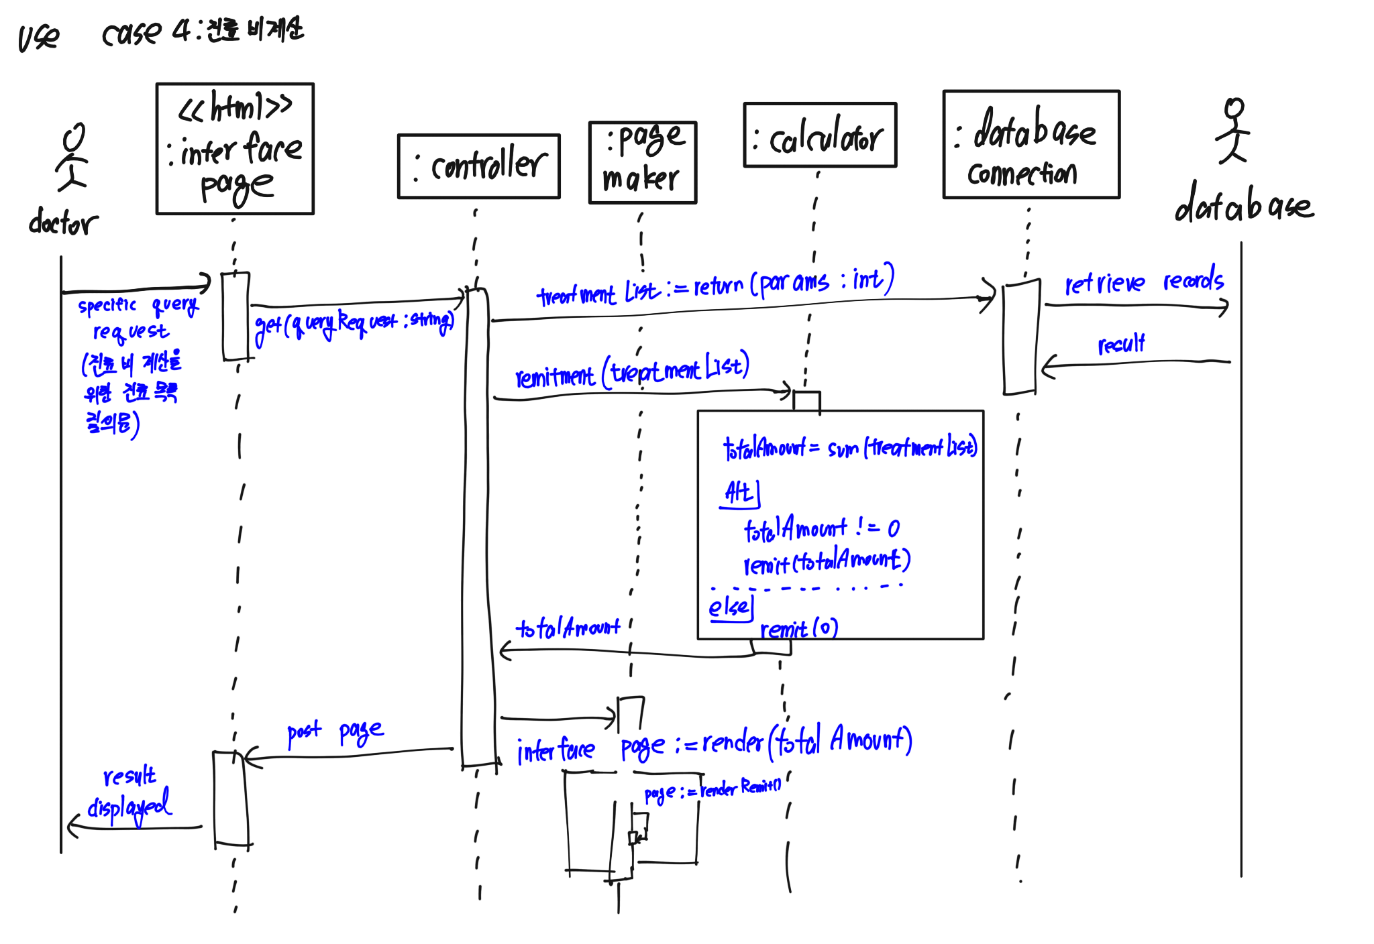 use case 4 : 진료 비 계산
<<html>>
: interface
page
: controller
: page
maker
: calculator
: database
connection
doctor
database
specific query
request
(진료 비 계산을
위한 진료 목록
질의응)
get(queryRequest : string)
treatment List := return (params : int)
retrieve records
result
remitment (treatment List)
totalAmount = sum (treatment List)
Alt
total Amount != 0
remit (total Amount)
else
remit (0)
total Amount
post page
interface page := render (total Amount)
page := render Remit()
result
displayed